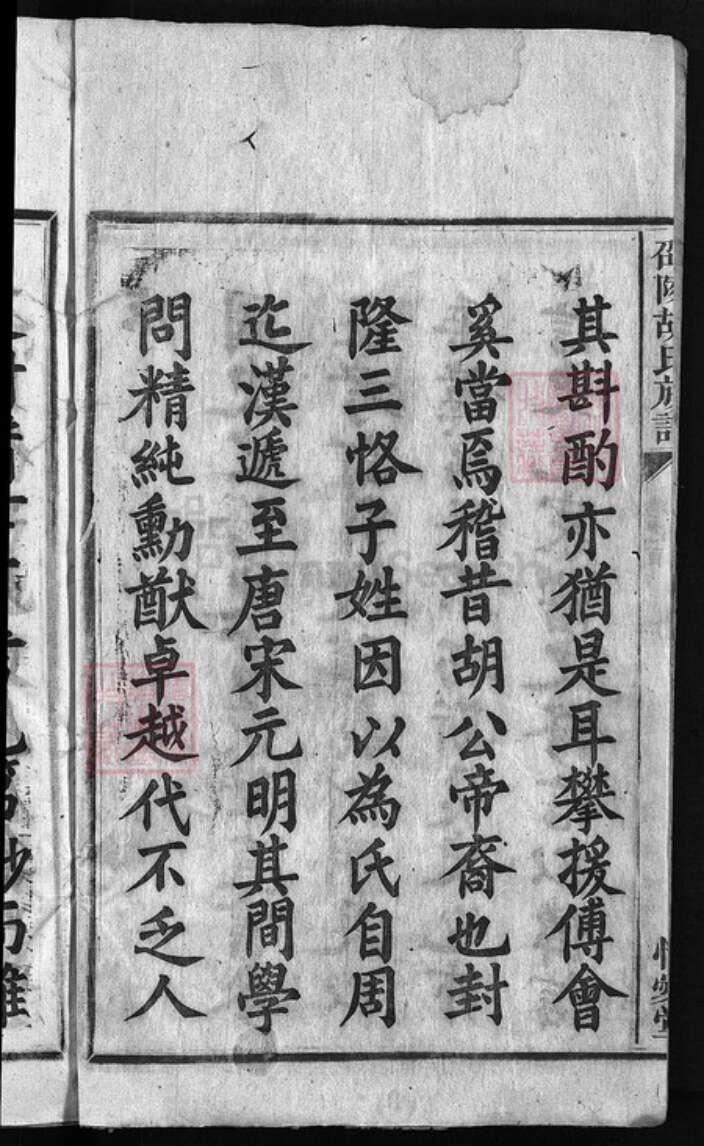 邵陵胡氏族譜
其斟酌亦猶是耳攀援傅會
奚當焉稽昔胡公帝裔也封
隆三恪子姓因以為氏自周
迄漢遞至唐宋元明其間學
問精純勳猷卓越代不乏人